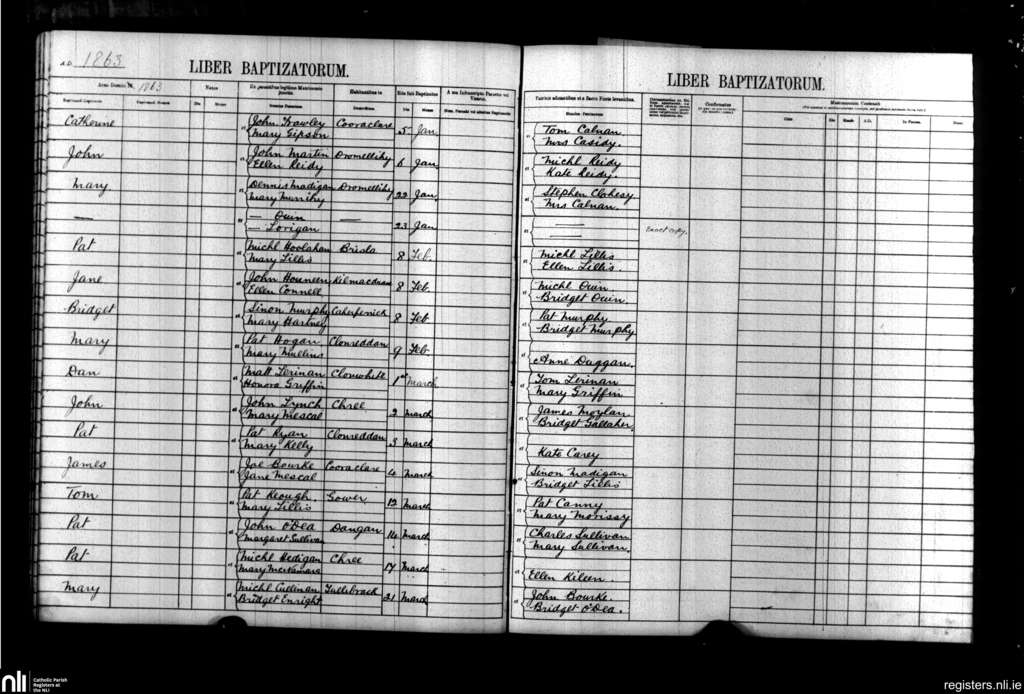 A.D. 1863
LIBER BAPTIZATORUM.
LIBER BAPTIZATORUM.
Anno Domini 1863
Habitantibus in
Natus
Die
Mense
Confirmatus
Matrimonium Contraxit
Catherine
John Frawley Cooraclare 5 Jan
Mary Gipson
Tom Calnan
Mrs Casidy.
John
John Martin Dromellihy 6 Jan
Ellen Reidy
Michl Reidy
Kate Reidy.
Mary
Dennis Madigan Dromellihy 22 Jan.
Mary Murrihy
Stephen Clohesy
Mrs Calnan.
— Quin — 23 Jan
— Lorigan
Exact copy.
Pat
Michl Hoolahan Brisla 8 Feb.
Mary Lillis
Michl Lillis
Ellen Lillis.
Jane
John Houneen Kilmacduan 8 Feb
Ellen Connell
Michl Quin
Bridget Quin.
Bridget
Sinon Murphy Caherfenick 8 Feb
Mary Hartney
Pat Murphy
Bridget Murphy
Mary
Pat Hogan Clonreddan 9 Feb
Mary Mullins
Anne Duggan.
Dan
Matt Lerinan Clonwhite 1st March
Honora Griffin
Tom Lerinan
Mary Griffin
John
John Lynch Chree 2 March
Mary Mescal
James Moylan
Bridget Gallaher.
Pat
Pat Ryan Clonreddan 3 March
Mary Kelly
Kate Carey
James
Joe Bourke Cooraclare 4 March
Jane Mescal
Sinon Madigan
Bridget Lillis
Tom
Pat Keough. Gower 12 March
Mary Lillis
Pat Canny
Mary Morissey
Pat
John O'Dea Dangan 14 March
Margaret Sullivan
Charles Sullivan
Mary Sullivan.
Pat
Michl Hedigan Chree 17 March
Mary McNamara
Ellen Kileen.
Mary
Michl Cullinan Tullabrack 21 March
Bridget Enright
John Bourke.
Bridget O'Dea.
nli
Catholic Parish
Registers at
the NLI
registers.nli.ie